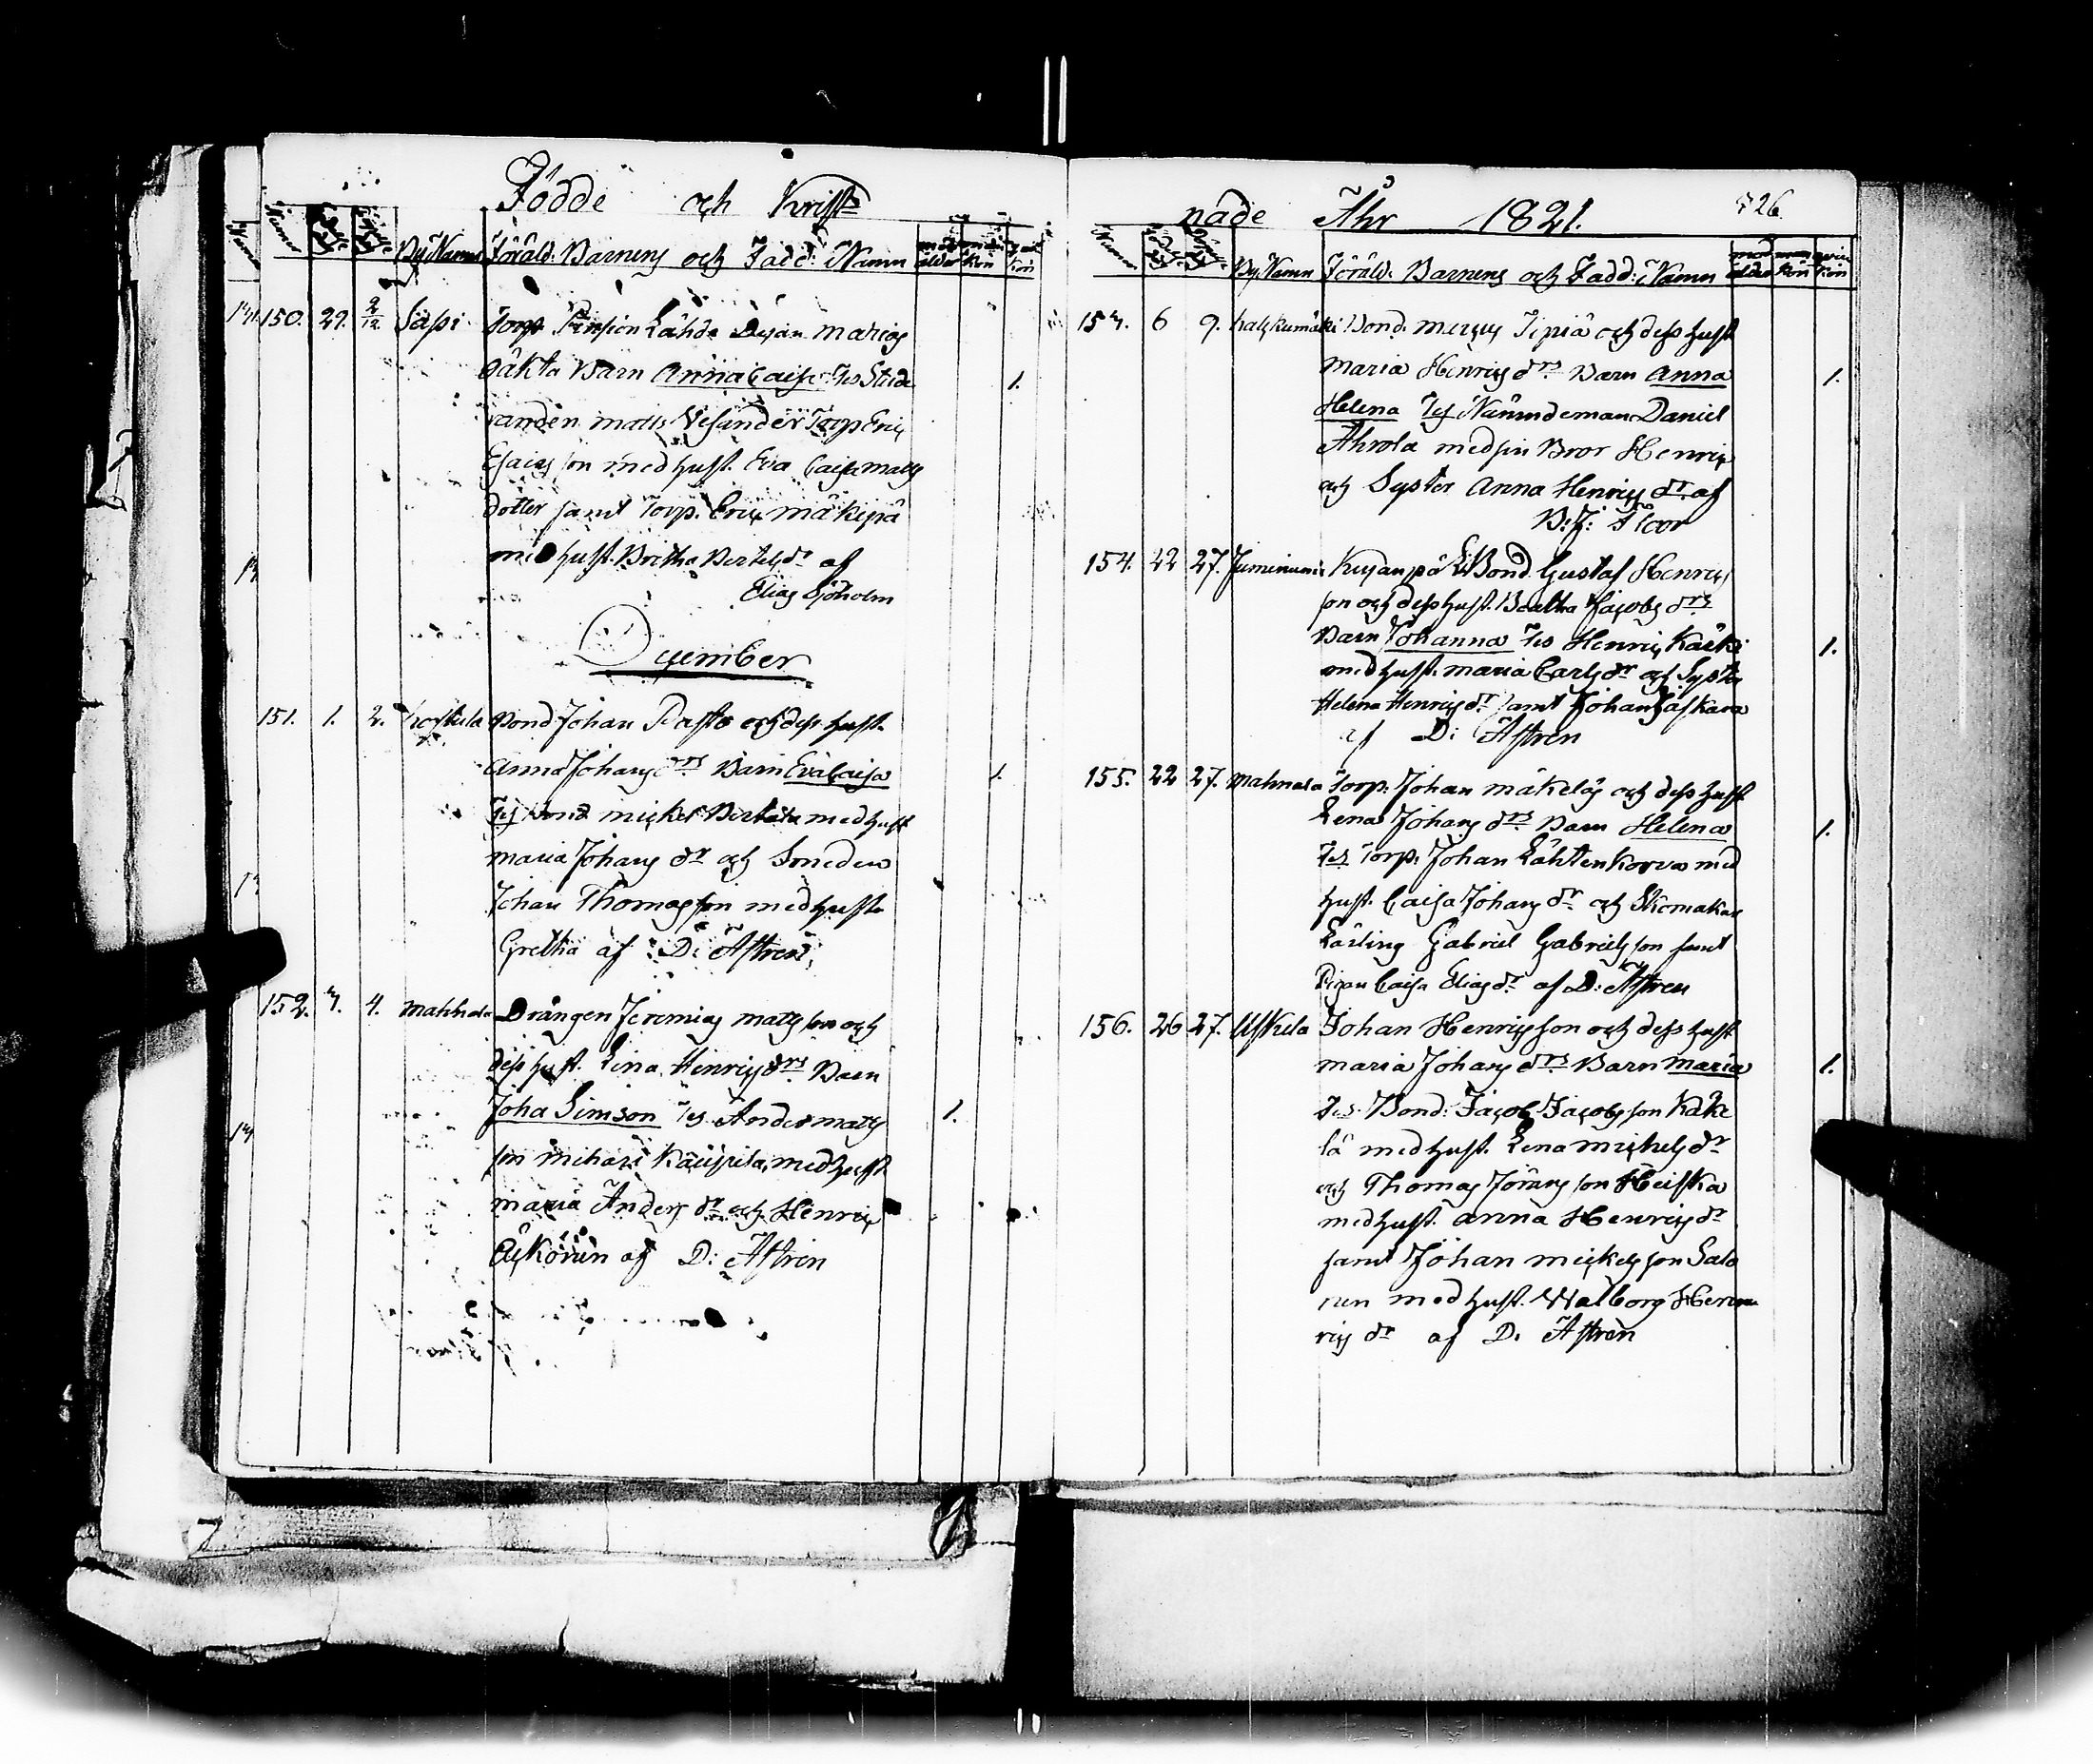 Födde och Krist
By Namn Föräld: Barnens och Fadd: Namn
150. 29. 2/12 Sassi Torp. Lähde Pigan Marias
oäkta Barn Anna Caisa Tes Stude
randen Matts Vesander Torp Eric
Esaias son med hust. Eva Caisa Matts
dotter samt Torp. Eric Mäkipä
med hust. Britha Bertels dr af
Elias Sjöholm
December
151. 1. 2. Bond Johan Rasto och dess hust.
Anna Johans drs Barn Eva Caisa
Tes Bond Mickel med hust
Maria Johans dr och Smeden
Johan Thomas son med hust.
Gretha af D: Astren
152. 3. 4. Mahnala Drängen Jeremias Matts son och
dess hust. Lena Henrics drs Barn
Joha Simson Tes Anders Matts
son Kaupila med hust.
Maria Anders dr och Henric
af D: Astren
nade Åhr 1821. 326.
By Namn Föräld: Barnens och Fadd: Namn
153. 6 9. Bond. Marcus Sipiä och dess hust
Maria Henrics drs Barn Anna 1.
Helena Tes Nämndeman Daniel
Ahrola med sin Bror Henric
och Syster Anna Henrics dr af
B: J: Floor
154. 22 27. Juminiemi Kujanpä Bond. Gustaf Henrics
son och dess hust. Beatha Jacobs drs
Barn Johanna Tes Henric Kaski 1.
med hust. Maria Carls dr och Syster
Helena Henrics dr samt Johan Jäskara
af D: Astren
155. 22 27. Mahnala Torp. Johan Mäkeläs och dess hust
Lena Johans drs Barn Helena 1.
Tes Torp. Johan Lähtenkorva med
hust. Caisa Johans dr och Skomakar
Lärling Gabriel Gabriels son samt
Pigan Caisa Elias dr af D: Astren
156. 26 27. Uskela Johan Henrics son och dess hust
Maria Johans drs Barn Maria 1.
Tes Bond: Jacob Jacobs son Käke
lä med hust. Lena Mickels dr
och Thomas Jörans son Heiska
med hust. Anna Henrics dr
samt Johan Mickels son Salo
nen med hust. Walborg Hen
rics dr af D: Astren